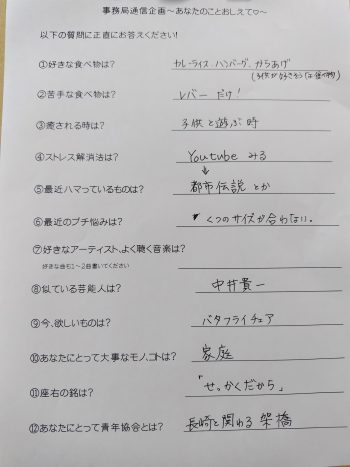 事務局通信企画～あなたのことおしえて♡～
以下の質問に正直にお答えください！
①好きな食べ物は？ カレーライス、ハンバーグ、からあげ
(子供が好きそうな食べ物)
②苦手な食べ物は？ レバーだけ！
③癒される時は？ 子供と遊ぶ時
④ストレス解消法は？ Youtube みる
↓
⑤最近ハマっているものは？ 都市伝説とか
⑥最近のプチ悩みは？ くつのサイズが合わない。
⑦好きなアーティスト、よく聴く音楽は？
好きな曲も1～2曲書いてください
⑧似ている芸能人は？ 中井貴一
⑨今、欲しいものは？ バタフライチェア
⑩あなたにとって大事なモノ、コトは？ 家庭
⑪座右の銘は？ 「せっかくだから」
⑫あなたにとって青年協会とは？ 長崎と関わる架橋